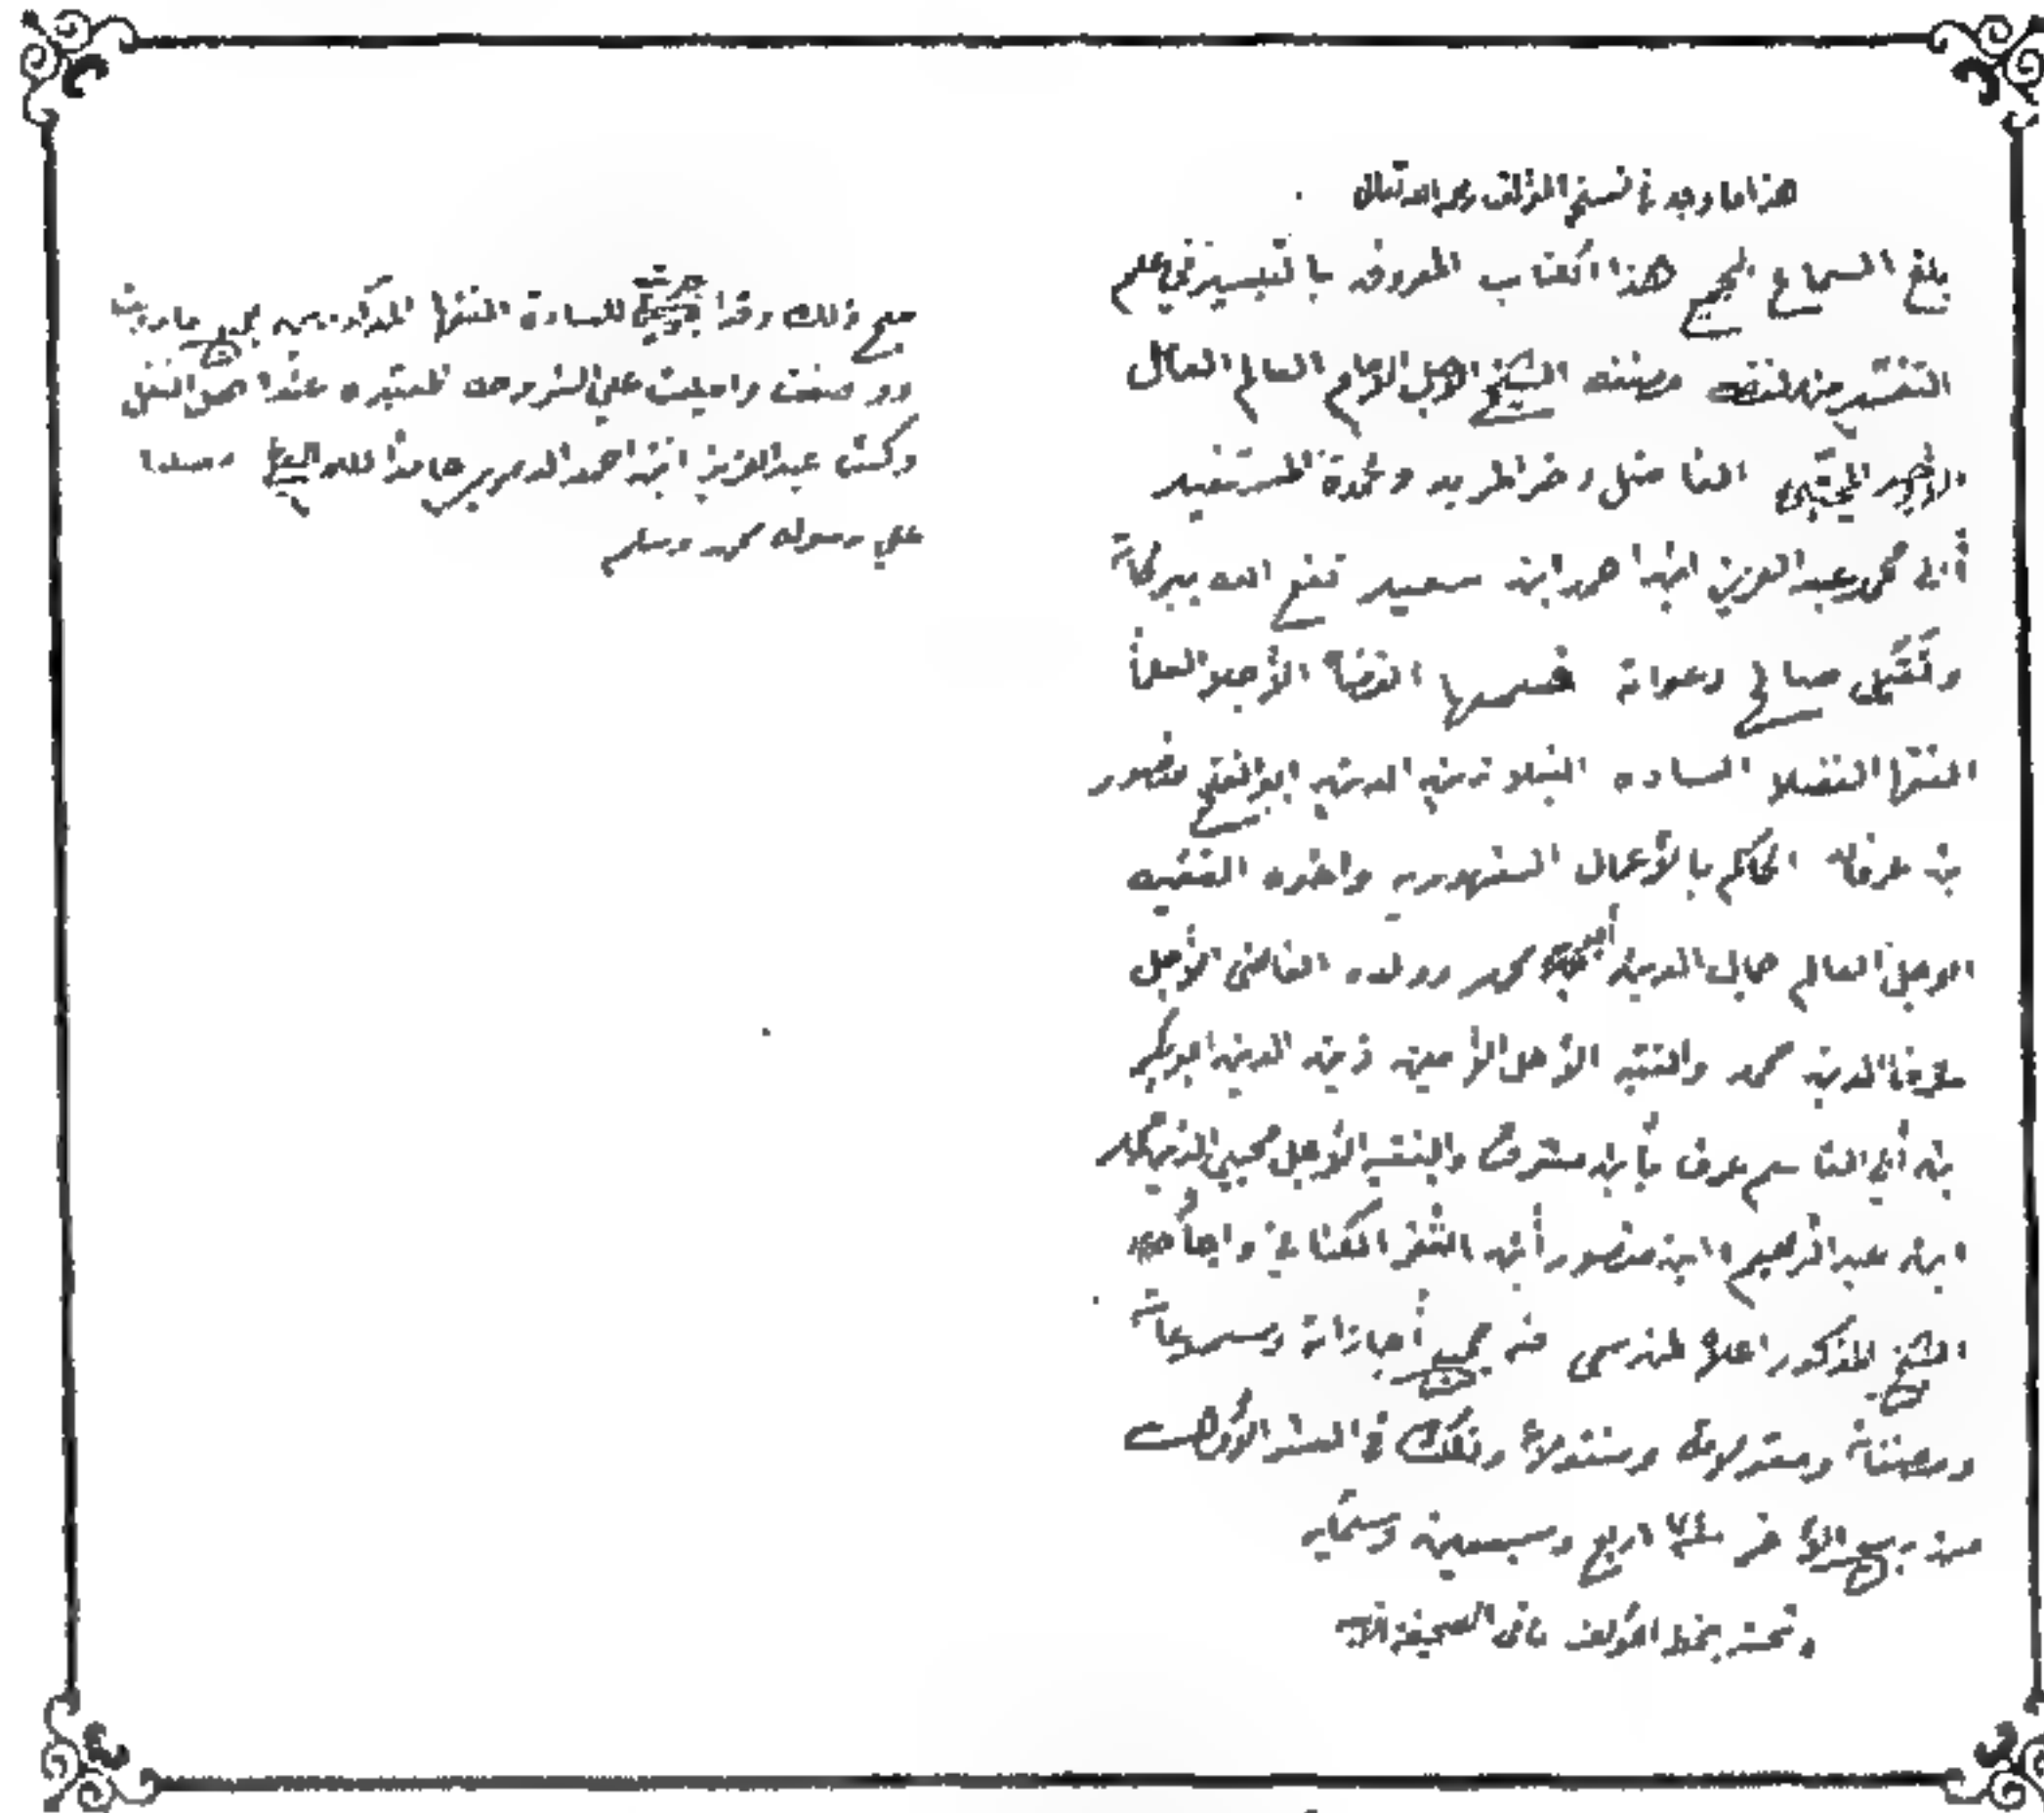 هذا ما وجد في نسخة المؤلف رحمه الله تعالى
بلغ السماع لجميع هذا الكتاب المعروف بالتيسير في علم
التفسير من لفظ مصنفه الشيخ الأجل الإمام العالم العامل
الأوحد الفاضل وعمدة المستفيد
أبي محمد عبد العزيز ابن أحمد ابن سعيد نفع الله ببركاته
وتقبل صالح دعواته فسمعها القضاة الأجلا العلما
الفقها الفضلا الساده النبلا زين الدين ابو الفتح منصور
بن عرفات الحاكم بالأعمال السنهوريه واخوه الفقيه
الاجل العالم جمال الدين محمد وولده القاضي الأجل
الدين محمد والفقيه الأجل الأمين زين الدين ابو بكر
بن أبي القاسم عرف بأبن مشرف والفقيه الأجل محيي الدين محمد
ابن عبد الرحيم ابن منصور أبن الكناني واجاز
الشيخ المذكور اعلاه لمن سمي منه جميع أجازاته ومسموعاته
ومصنفاته ومقولاته ومنقولاته وذلك في العشر الأول
من ربيع الآخر سنة اربع وسبعين وستمايه
وتحته بخط المؤلف ما في الصحيفة الآتيه
صح ذلك وقد أجزت للسادة الفقها المذكورين جميع ما رويت
وصنفت وامليت علي الشروط المعتبره عند اهل النقل
وكتب عبد العزيز ابن احمد الديريني حامدا لله ومصليا
علي رسوله محمد ومسلم